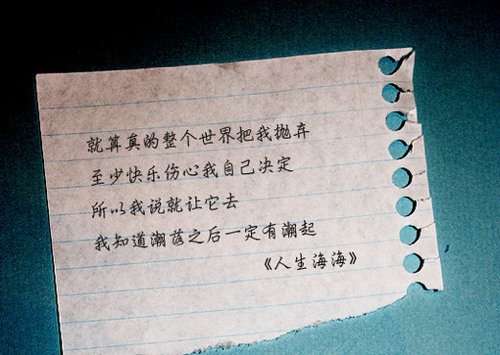 就算真的整个世界把我抛弃
至少快乐伤心我自己决定
所以我说就让它去
我知道潮落之后一定有潮起
《人生海海》